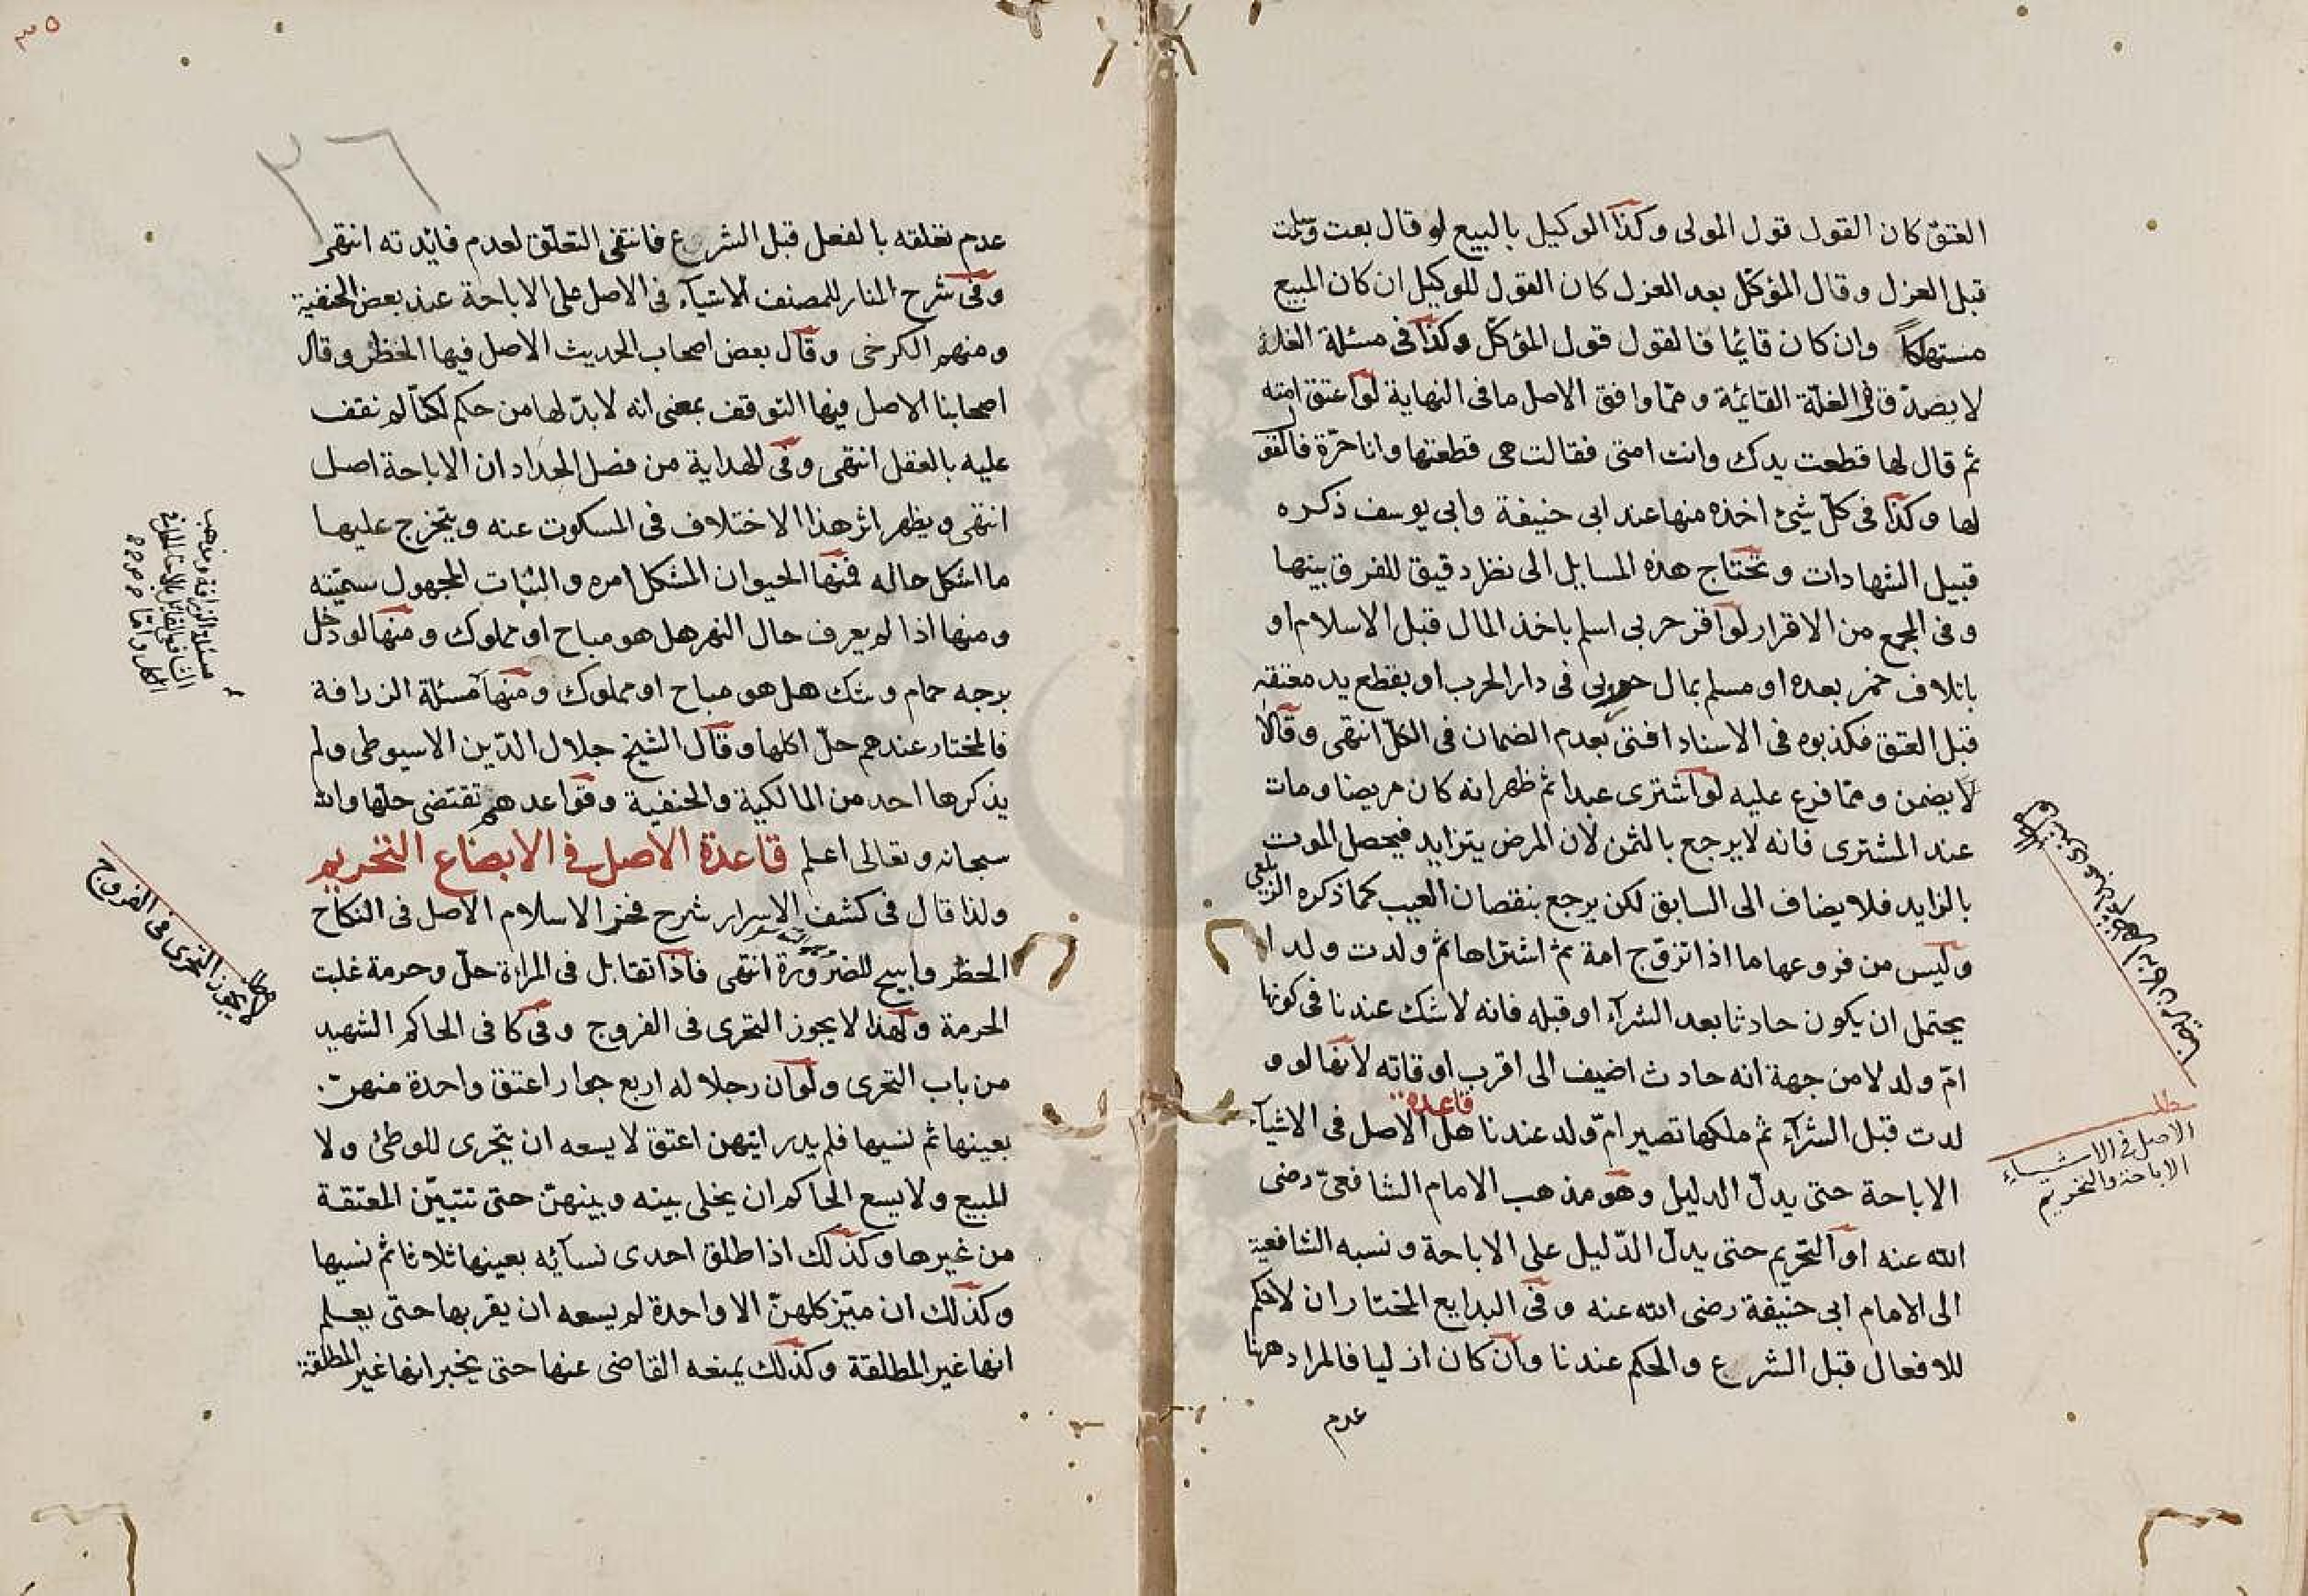 العتق كان القول قول المولى وكذا الوكيل بالبيع لو قال بعت وسلمت
قبل العزل وقال المؤكل بعد العزل كان القول للوكيل ان كان المبيع
مستهلكا وان كان قائما فالقول قول المؤكل وكذا فى مسئلة الغلة
لا يصدق فى الغلة القائمة ومما وافق الاصل ما فى النهاية لو اعتق امته
ثم قال لها قطعت يدك وانت امتى فقالت هى قطعتها وانا حرة فالقول
لها وكذا فى كل شئ اخذه منها عند ابى حنيفة وابى يوسف ذكره
قبيل الشهادات وتحتاج هذه المسايل الى نظر دقيق للفرق بينها
وفى المجمع من الاقرار لو اقر حربى اسلم باخذ المال قبل الاسلام او
باتلاف خمر بعده او مسلم بمال حربى فى دار الحرب او بقطع يد معتقه
قبل العتق فكذبوه فى الاسناد افتى بعدم الضمان فى الكل انتهى وقالا
لا يضمن ومما فرع عليه لو اشترى عبدا ثم ظهر انه كان مريضا ومات
عند المشترى فانه لا يرجع بالثمن لان المرض يتزايد فيحصل الموت
بالزايد فلا يضاف الى السابق لكن يرجع بنقصان العيب كما ذكره الزيلعى
وليس من فروعها ما اذا تزوج امة ثم اشتراها ثم ولدت ولدا
يحتمل ان يكون حادثا بعد الشرآء او قبله فانه لا شك عندنا فى كونها
ام ولد لا من جهة انه حادث اضيف الى اقرب اوقاته لانها لو و
لدت قبل الشرآء ثم ملكها تصير ام ولد عندنا قاعدة هل الاصل فى الاشيآء
الاباحة حتى يدل الدليل وهو مذهب الامام الشافعى رضى
الله عنه او التحريم حتى يدل الدليل على الاباحة ونسبه الشافعية
الى الامام ابى حنيفة رضى الله عنه وفى البدايع المختار ان لا حكم
للافعال قبل الشرع والحكم عندنا وان كان ازليا فالمراد هنا
عدم
مطلب
الاصل فى الاشياء
الاباحة والتحريم
٣٥
٢٦
عدم تعلقه بالفعل قبل الشرع فانتفى التعلق لعدم فايدته انتهى
وفى شرح المنار للمصنف الاشيآء فى الاصل على الاباحة عند بعض الحنفية
ومنهم الكرخى وقال بعض اصحاب الحديث الاصل فيها الحظر وقال
اصحابنا الاصل فيها التوقف بمعنى انه لا بد لها من حكم لكنا لم نقف
عليه بالعقل انتهى وفى الهداية من فصل الحداد ان الاباحة اصل
انتهى ويظهر اثر هذا الاختلاف فى المسكوت عنه ويتخرج عليها
ما اشكل حاله فمنها الحيوان المشكل امره والنبات المجهول سميته
ومنها اذا لم يعرف حال النهر هل هو مباح او مملوك ومنها لو دخل
برجه حمام وشك هل هو مباح او مملوك ومنها مسئلة الزرافة
فالمختار عندهم حل اكلها وقال الشيخ جلال الدين الاسيوطى ولم
يذكرها احد من المالكية والحنفية وقواعدهم تقتضى حلها والله
سبحانه وتعالى اعلم قاعدة الاصل فى الابضاع التحريم
ولذا قال فى كشف الاسرار شرح فخر الاسلام الاصل فى النكاح
الحظر وابيح للضرورة انتهى فاذا تقابل فى المراة حل وحرمة غلبت
الحرمة ولهذا لا يجوز التحرى فى الفروج وفى كافى الحاكم الشهيد
من باب التحرى ولو ان رجلا له اربع جوار اعتق واحدة منهن
بعينها ثم نسيها فلم يدر ايتهن اعتق لا يسعه ان يتحرى للوطئ ولا
للبيع ولا يسع الحاكم ان يخلى بينه وبينهن حتى تتبين المعتقة
من غيرها وكذلك اذا طلق احدى نسآئه بعينها ثلاثا ثم نسيها
وكذلك ان ميز كلهن الا واحدة لم يسعه ان يقربها حتى يعلم
انها غير المطلقة وكذلك يمنعه القاضى عنها حتى يخبر انها غير المطلقة
مطلب
لا يجوز التحرى فى الفروج